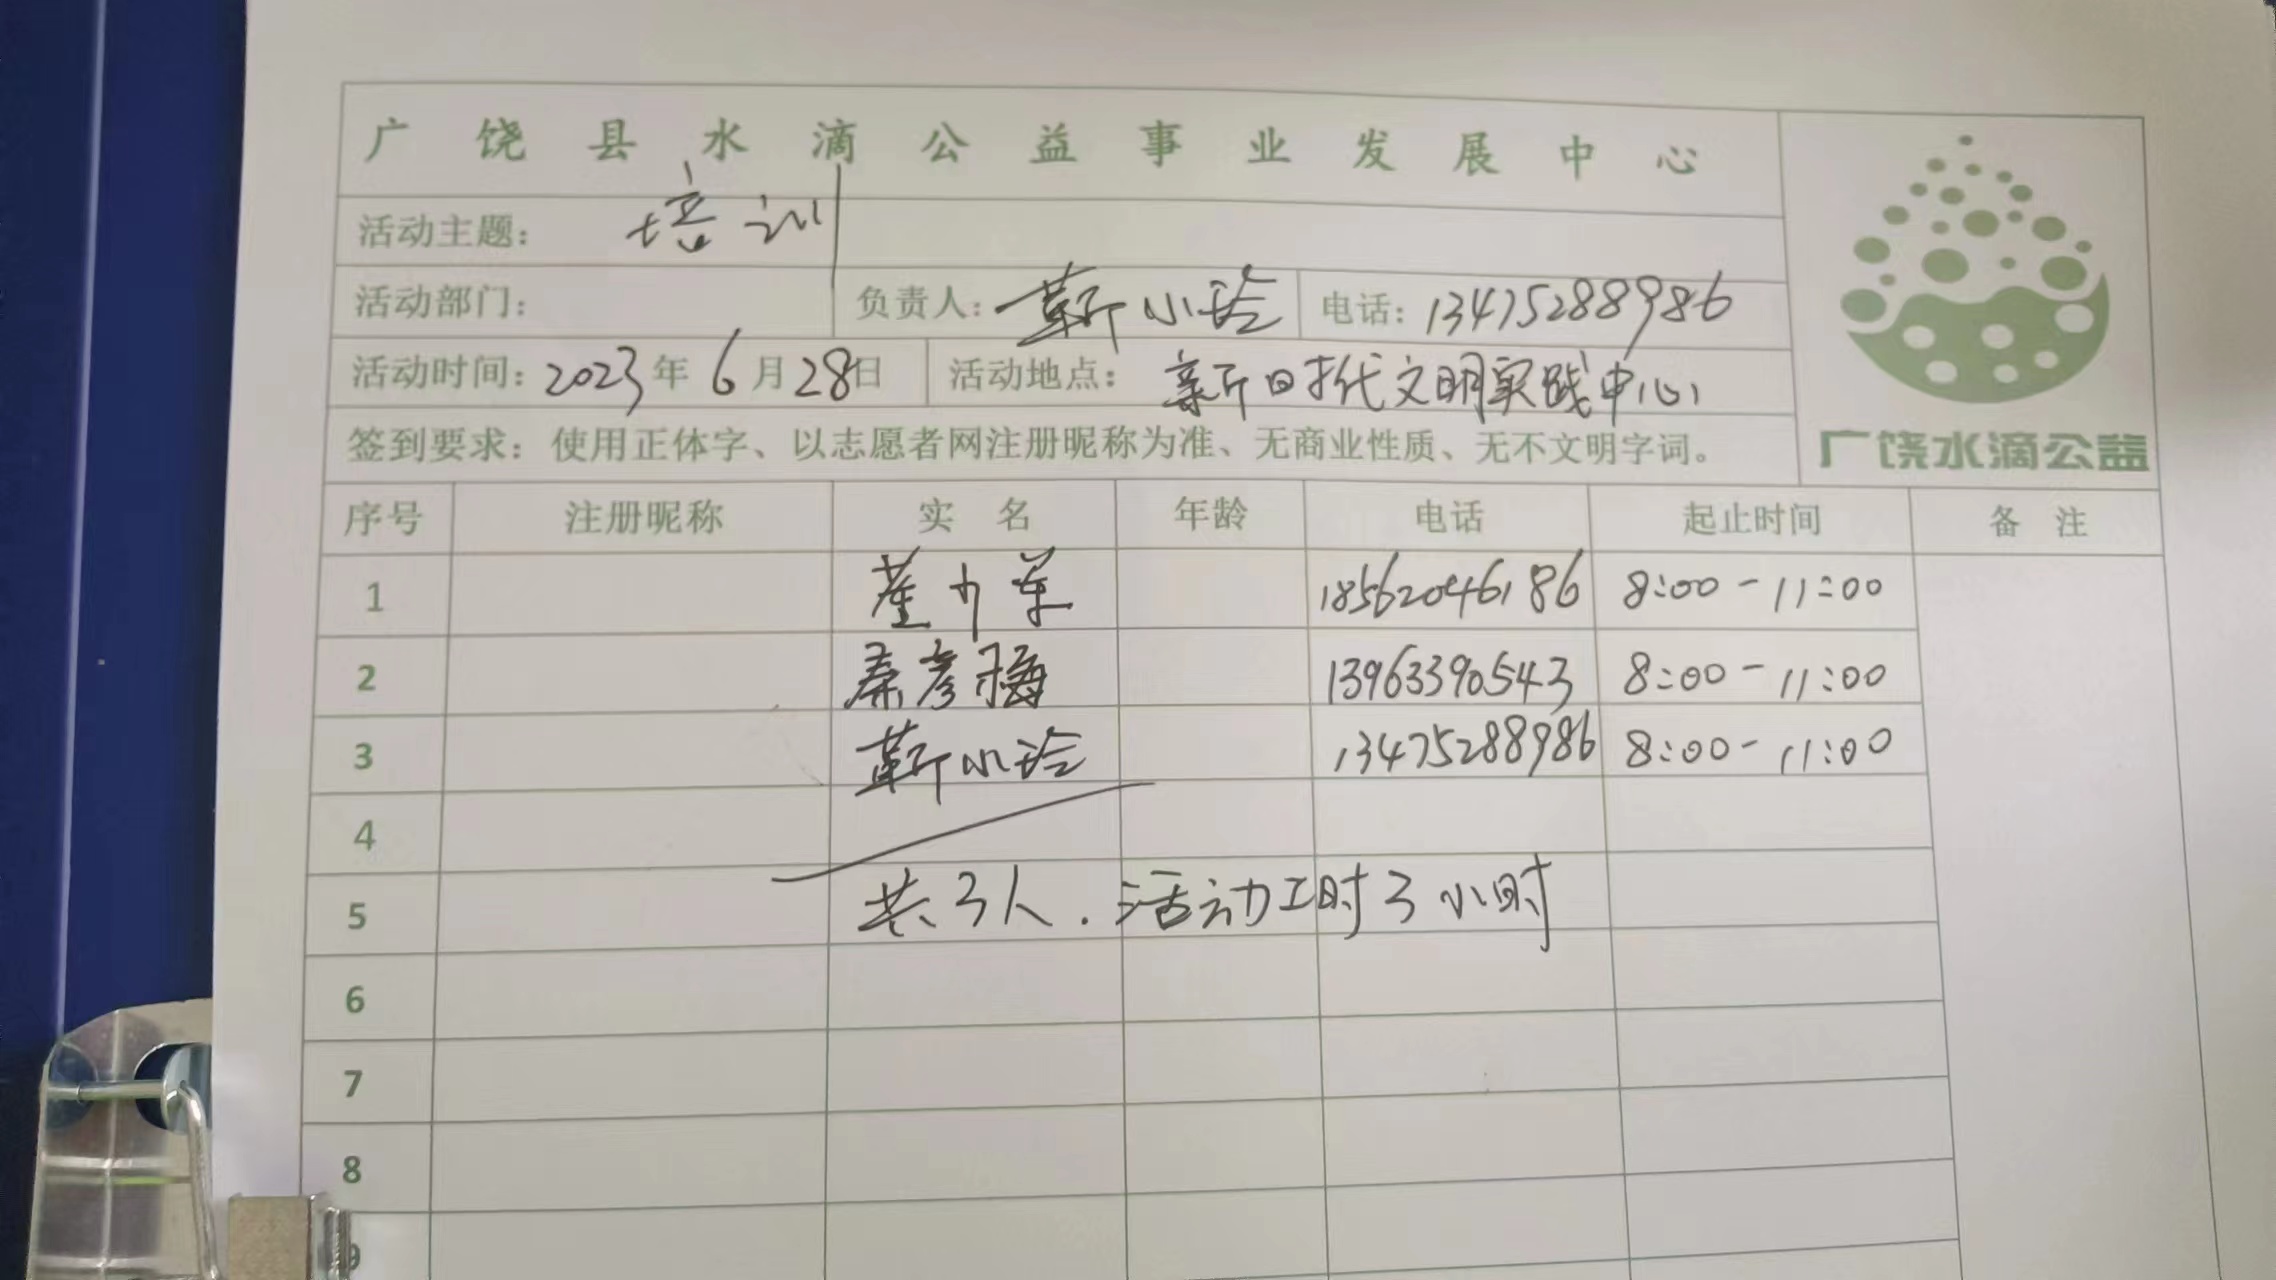 广饶县水滴公益事业发展中心
活动主题: 培训
活动部门: 负责人: 靳小玲 电话: 13475288986
活动时间: 2023年6月28日 活动地点: 新时代文明实践中心
签到要求: 使用正体字、以志愿者网注册昵称为准、无商业性质、无不文明字词。
广饶水滴公益
序号 注册昵称 实 名 年龄 电话 起止时间 备 注
1 18562046186 8:00-11:00
2 秦彦梅 13963390543 8:00-11:00
3 靳小玲 13475288986 8:00-11:00
4
5 共3人.活动工时3小时
6
7
8
9